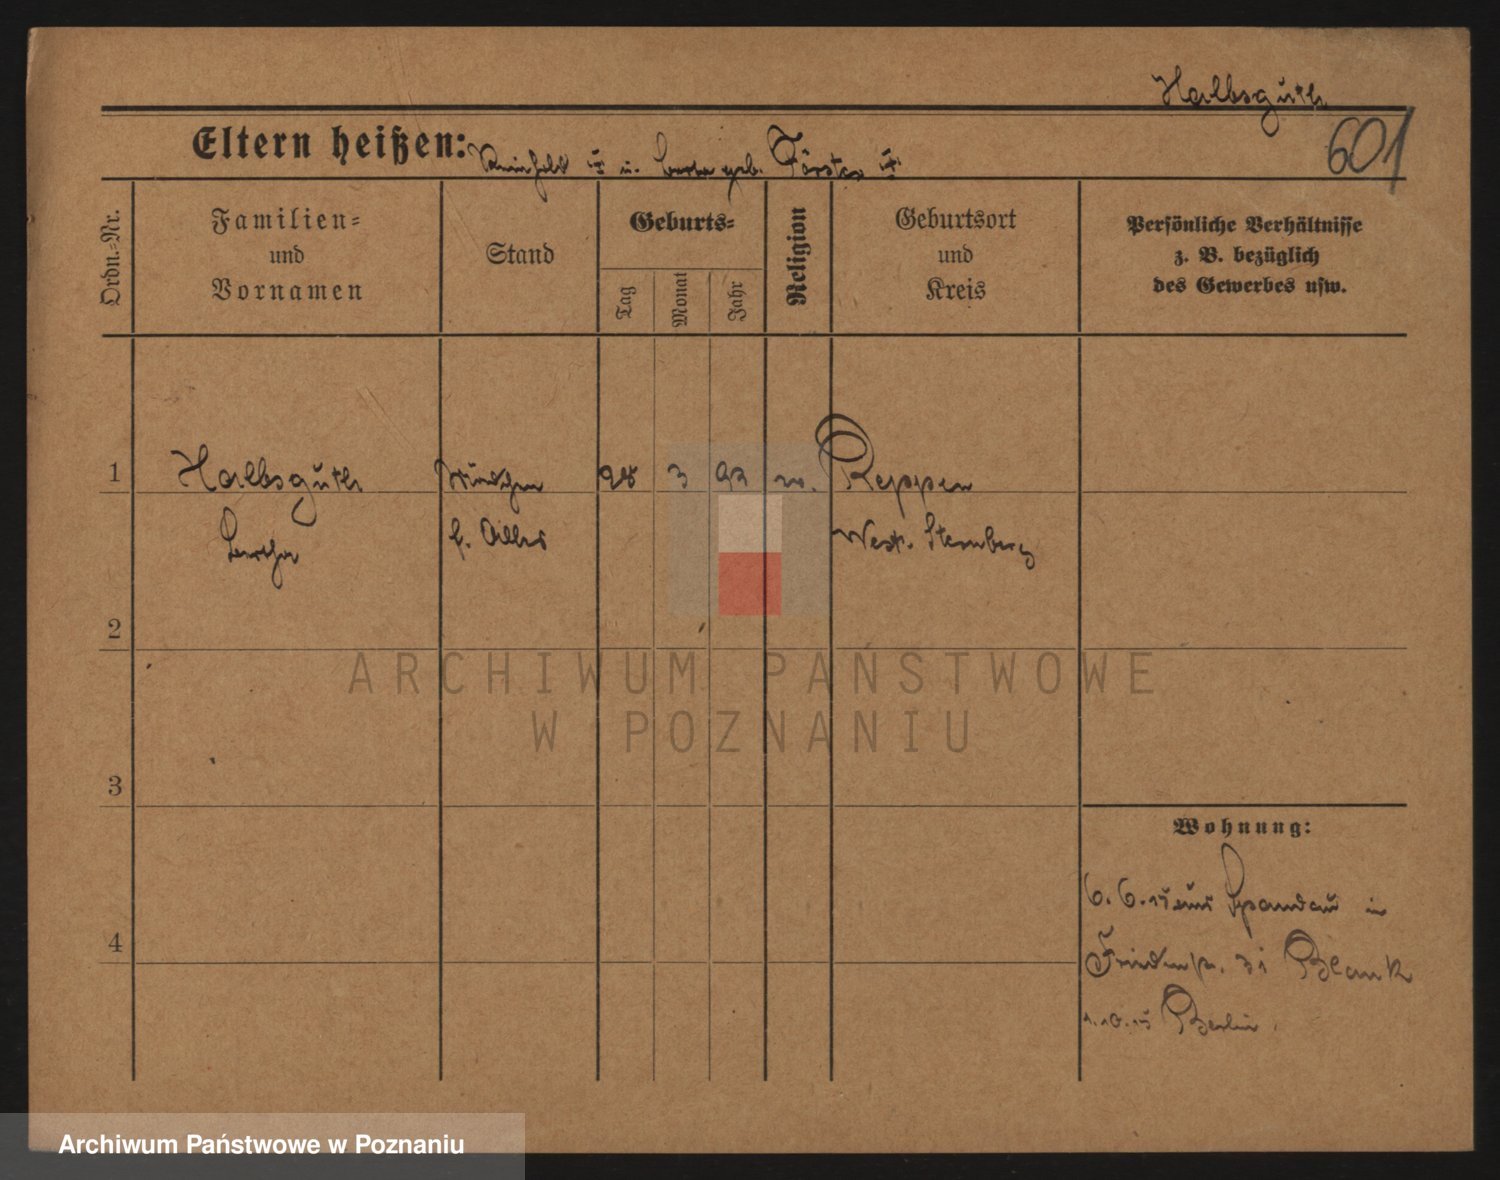 Halbsguth
601
Eltern heißen: Reinhold u. Berta geb. Förster
Ordn.-Nr.
Familien-
und
Vornamen
Stand
Geburts-
Tag
Monat
Jahr
Religion
Geburtsort
und
Kreis
Persönliche Verhältnisse
z. B. bezüglich
des Gewerbes usw.
1 Halbsguth Mädchen 28 3 92 Reppen
Bertha f. Alles West. Sternberg
2
3
4
Wohnung:
6. 6. 15 aus Spandau in
Friedenstr. 31 Blank
1.10.15 Berlin.
ARCHIWUM PAŃSTWOWE
W POZNANIU
Archiwum Państwowe w Poznaniu